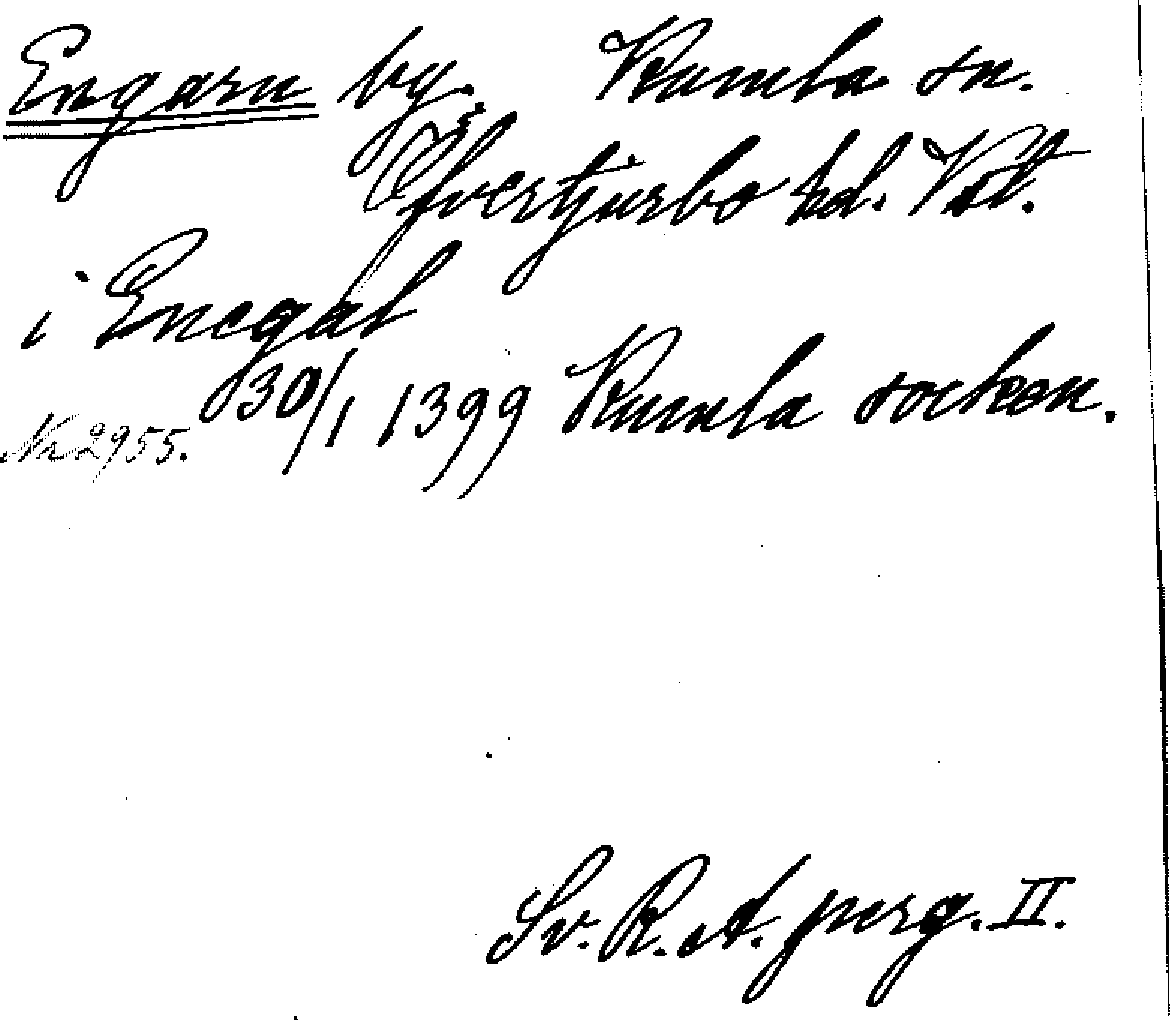 Engarn by. Kumla sn.
Öfvertjurbo hd. Vstl.
i Enegal
30/1 1399 Kumla socken.
Nr 2955.
Sv. R. A. perg. II.